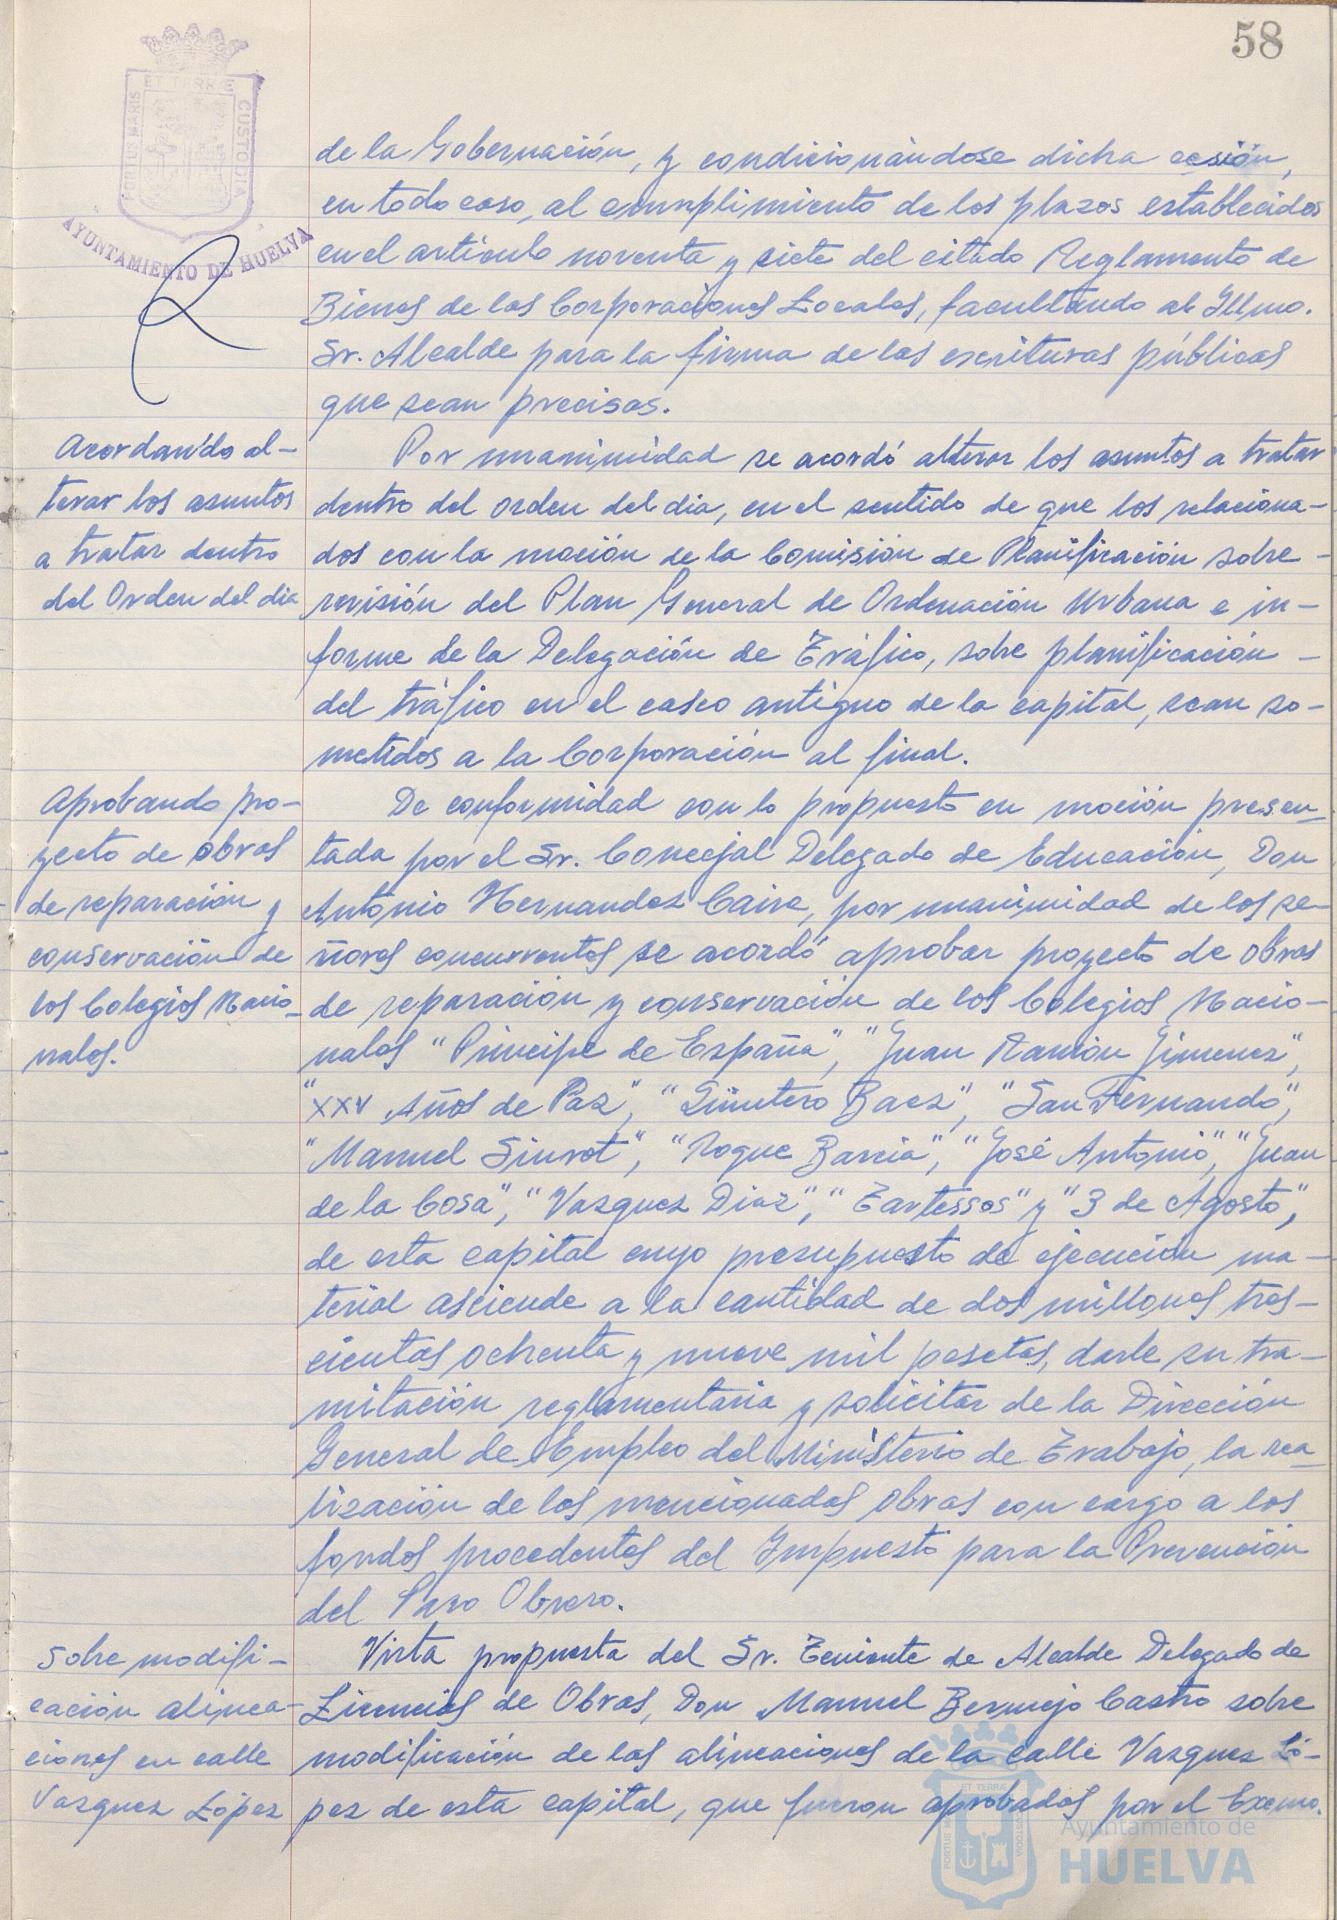 58
PORTUS MARIS
ET TERRE
CUSTODIA
AYUNTAMIENTO DE HUELVA
de la Gobernación, y condicionándose dicha cesión,
en todo caso, al cumplimiento de los plazos establecidos
en el artículo noventa y siete del citado Reglamento de
Bienes de las Corporaciones Locales, facultando al Iltmo.
Sr. Alcalde para la firma de las escrituras públicas
que sean precisas.
Acordando al-
terar los asuntos
a tratar dentro
del Orden del dia
Por unanimidad se acordó alterar los asuntos a tratar
dentro del orden del dia, en el sentido de que los relaciona-
dos con la moción de la Comisión de Planificación sobre
revisión del Plan General de Ordenación Urbana e in-
forme de la Delegación de Tráfico, sobre planificación
del tráfico en el casco antiguo de la capital, sean so-
metidos a la Corporación al final.
Aprobando pro-
yecto de obras
de reparación y
conservación de
los Colegios Nacio-
nales.
De conformidad con lo propuesto en moción presen-
tada por el Sr. Concejal Delegado de Educación, Don
Antonio Hernandez Caire, por unanimidad de los se-
ñores concurrentes se acordó aprobar proyecto de obras
de reparación y conservación de los Colegios Nacio-
nales "Principe de España", "Juan Ramón Jimenez",
"XXV Años de Paz", "Quintero Baez", "San Fernando",
"Manuel Siurot", "Roque Barcia", "José Antonio", "Juan
de la Cosa", "Vazquez Diaz", "Tartessos" y "3 de Agosto",
de esta capital cuyo presupuesto de ejecución ma-
terial asciende a la cantidad de dos millones tres-
cientas ochenta y nueve mil pesetas, darle su tra-
mitación reglamentaria y solicitar de la Dirección
General de Empleo del Ministerio de Trabajo, la rea-
lización de las mencionadas obras con cargo a los
fondos procedentes del Impuesto para la Prevención
del Paro Obrero.
Sobre modifi-
cación alinea-
ciones en calle
Vazquez López
Vista propuesta del Sr. Teniente de Alcalde Delegado de
Licencias de Obras, Don Manuel Bermejo Castro sobre
modificación de las alineaciones de la calle Vazquez Ló-
pez de esta capital, que fueron aprobadas por el Excmo.
ET TERRÆ
Ayuntamiento de
HUELVA